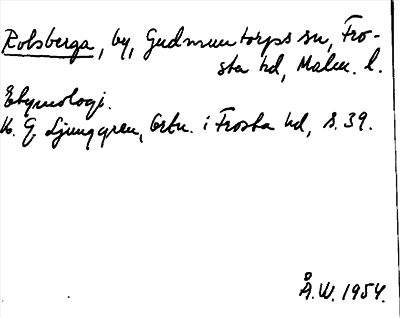 Rolsberga, by, Gudmuntorps sn, Fro-
sta hd, Malm. l.
Etymologi.
K. G. Ljunggren, Ortn. i Frosta hd, s. 39.
Å.W. 1954.